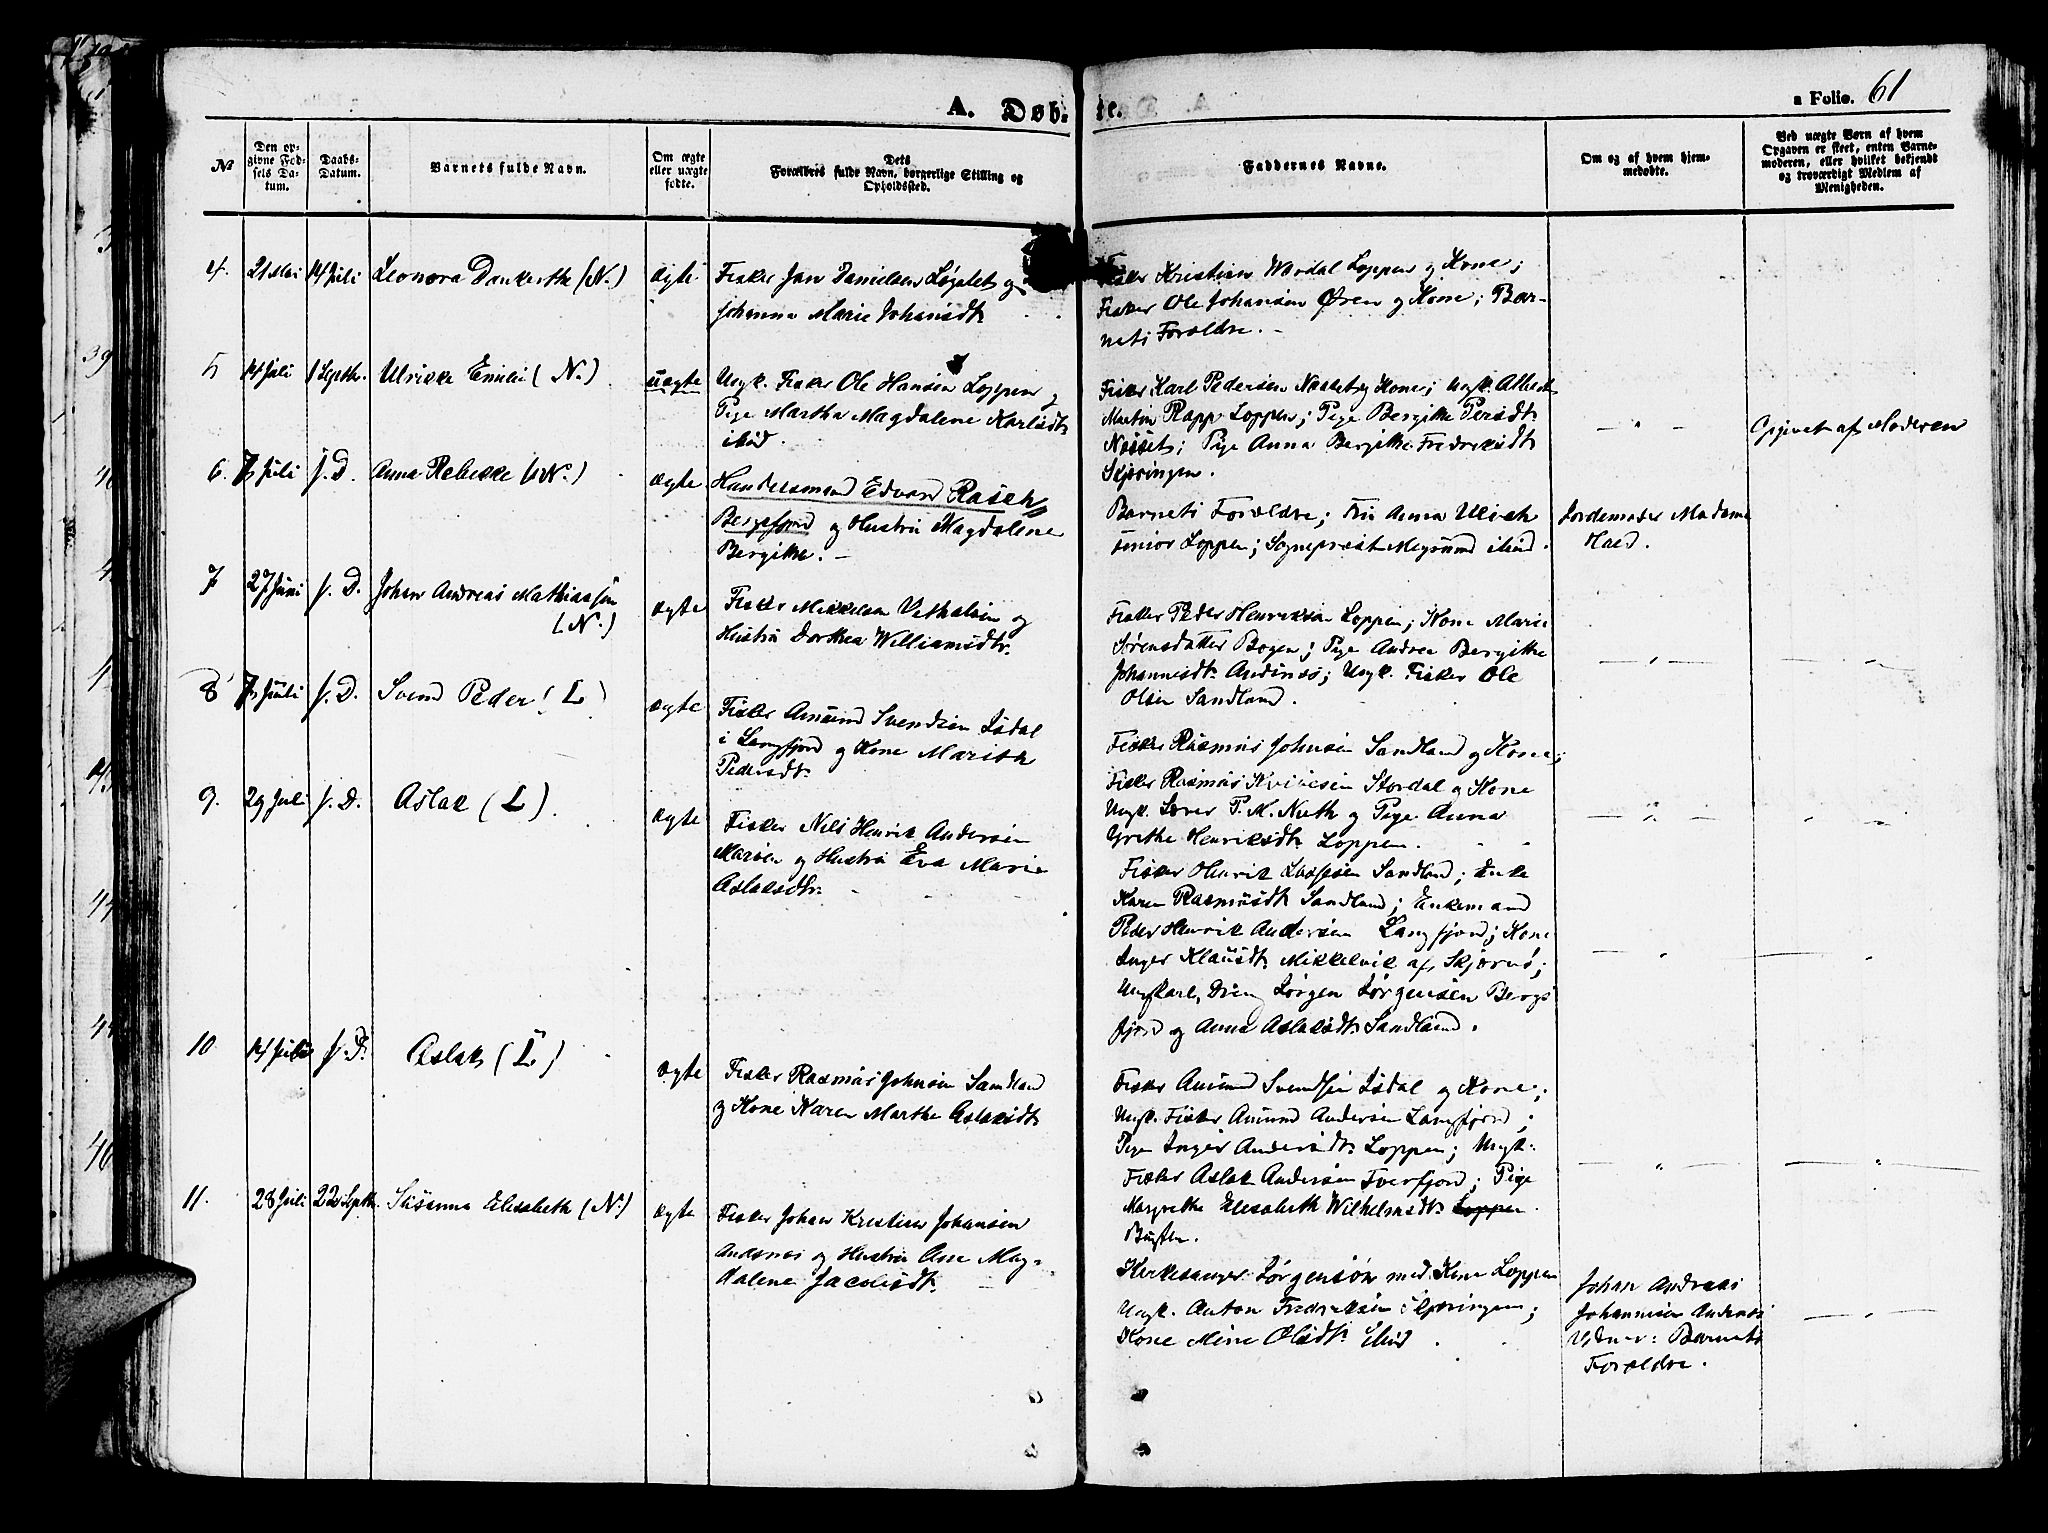 A. Døb- te.
a Folio. 61
№
Den op-
givne Fød-
sels Da-
tum.
Daabs-
Datum.
Barnets fulde Navn.
Om ægte
eller uægte
fødte.
Dets
Forældres fulde Navn, borgerlige Stilling og
Opholdssted.
Faddernes Navne.
Om og af hvem hjem-
medøbte.
Ved uægte Børn af hvem
Opgaven er skeet, enten Barne-
moderen, eller hvilket bekjendt
og troværdigt Medlem af
Menigheden.
4. 21 Mai 14 Juli Leonora Dankertha (N.) ægte
Fisker Jan Danielsen Løgslet og
Johanna Marie Johansdtr
Fisker Kristian Wardal Loppen og Kone;
Fisker Ole Johansen Øren og Kone; Bar-
nets Forældre. -
5 14 Juli 1 Septbr. Ulrikke Emilie (N.) uægte
Ungk. Fisker Ole Hansen Loppen og
Pige Martha Magdalene Karlsdtr
ibid.
Fisker Karl Pedersen Næsset og Kone; Ungk. Albert
Martin Rapp Loppen; Pige Bergithe Persdtr
Næsset; Pige Anna Bergithe Fredriksdtr
Skjøringen.
— " —
Opgivet af Moderen
6. 7 Juli s. D. Anna Rebekke (N.) ægte
Handelsmand Edvard Rasch
Bergsfjord og Hustru Magdalene
Bergithe. -
Barnets Forældre; Fru Anna Ulrich
senior Loppen; Sogneprest ibid.
Jordemoder Madame
7 27 Juni s. D. Johan Andreas Mathiassen
(N.) ægte
Fisker Mikkelsen og
Hustru Dorthea Williamsdtr.
Fisker Peder Henriksen Loppen; Kone Marie
Sørensdatter Bogen; Pige Andrea Bergithe
Johannesdtr Andsnæs; Ungk. Fisker Ole
Olsen Sandland.
— " — — " —
8 7 Juli s. D. Svend Peder (L) ægte
Fisker Amund Svendsen Isdal
i Langfjord og Kone Marith
Pedersdtr.
Fisker Rasmus Johnsen Sandland og Kone;
Fisker Rasmus Stordal og Kone
Ungk. Lærer P. M. og Pige Anna
Grethe Henriksdtr Loppen.
— " — — " —
9. 29 Juli s. D. Aslak (L). ægte
Fisker Nils Henrik Andersen
og Hustru Eva Marie
Aslaksdtr.
Fisker Henrik Lassesen Sandland; Enke
Karen Rasmusdtr Sandland; Enkemand
Peder Henrik Andersen Langfjord; Kone
Inger Klausdtr Mikkelvik af Skjærvø;
Ungkarl, Dreng Jørgen Jørgensen Bergs
fjord og Anna Aslaksdtr Sandland.
— " — — " —
10 14 Juli s. D. Aslak (L) ægte
Fisker Rasmus Johnsen Sandland
og Kone Karen Marthe Aslaksdtr
Fisker Amund Svendsen Isdal og Kone;
Ungk. Fisker Amund Andersen Langfjord;
Pige Inger Andersdtr Loppen; Ungk.
Fisker Aslak Andersen Tverfjord; Pige
Margrethe Elisabeth Wilhelmsdtr Loppen
Bugten.
— " — — " —
11. 28 Juli 22 Septbr. Susanna Elisabeth (N.) ægte
Fisker Johan Kristian Johansen
Andsnes og Hustru Ane Mag-
dalene Jacobsdtr.
Kirkesanger Jørgensen med Kone Loppen
Ungk. Anton Fredriksen Skjøringen;
Kone Mine Olsdtr ibid.
Johan Andreas
Johannesen Andsnes
Barnets
Forældre.
— " —